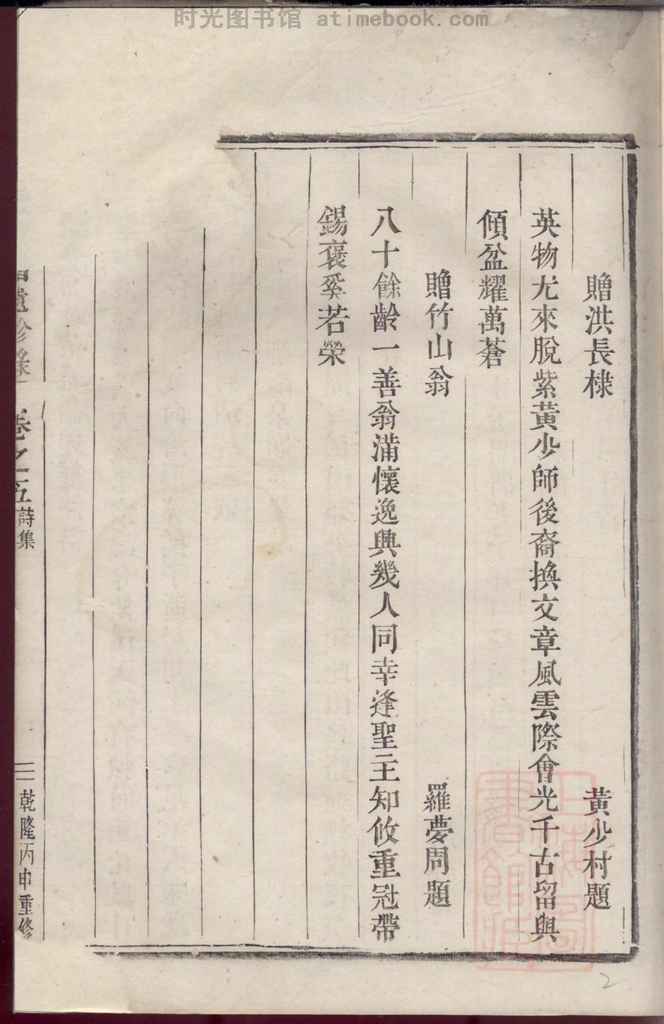 时光图书馆 atimebook.com
贈洪長棣 黃少村題
英物尤來脫紫黃少師後裔換文章風雲際會光千古留與
傾盆耀萬蒼
贈竹山翁 羅夢周題
八十餘齡一善翁滿懷逸興幾人同幸逢聖主知攸重冠帶
錫褒奚若榮
卷之五 詩集
三 乾隆丙申重修
2